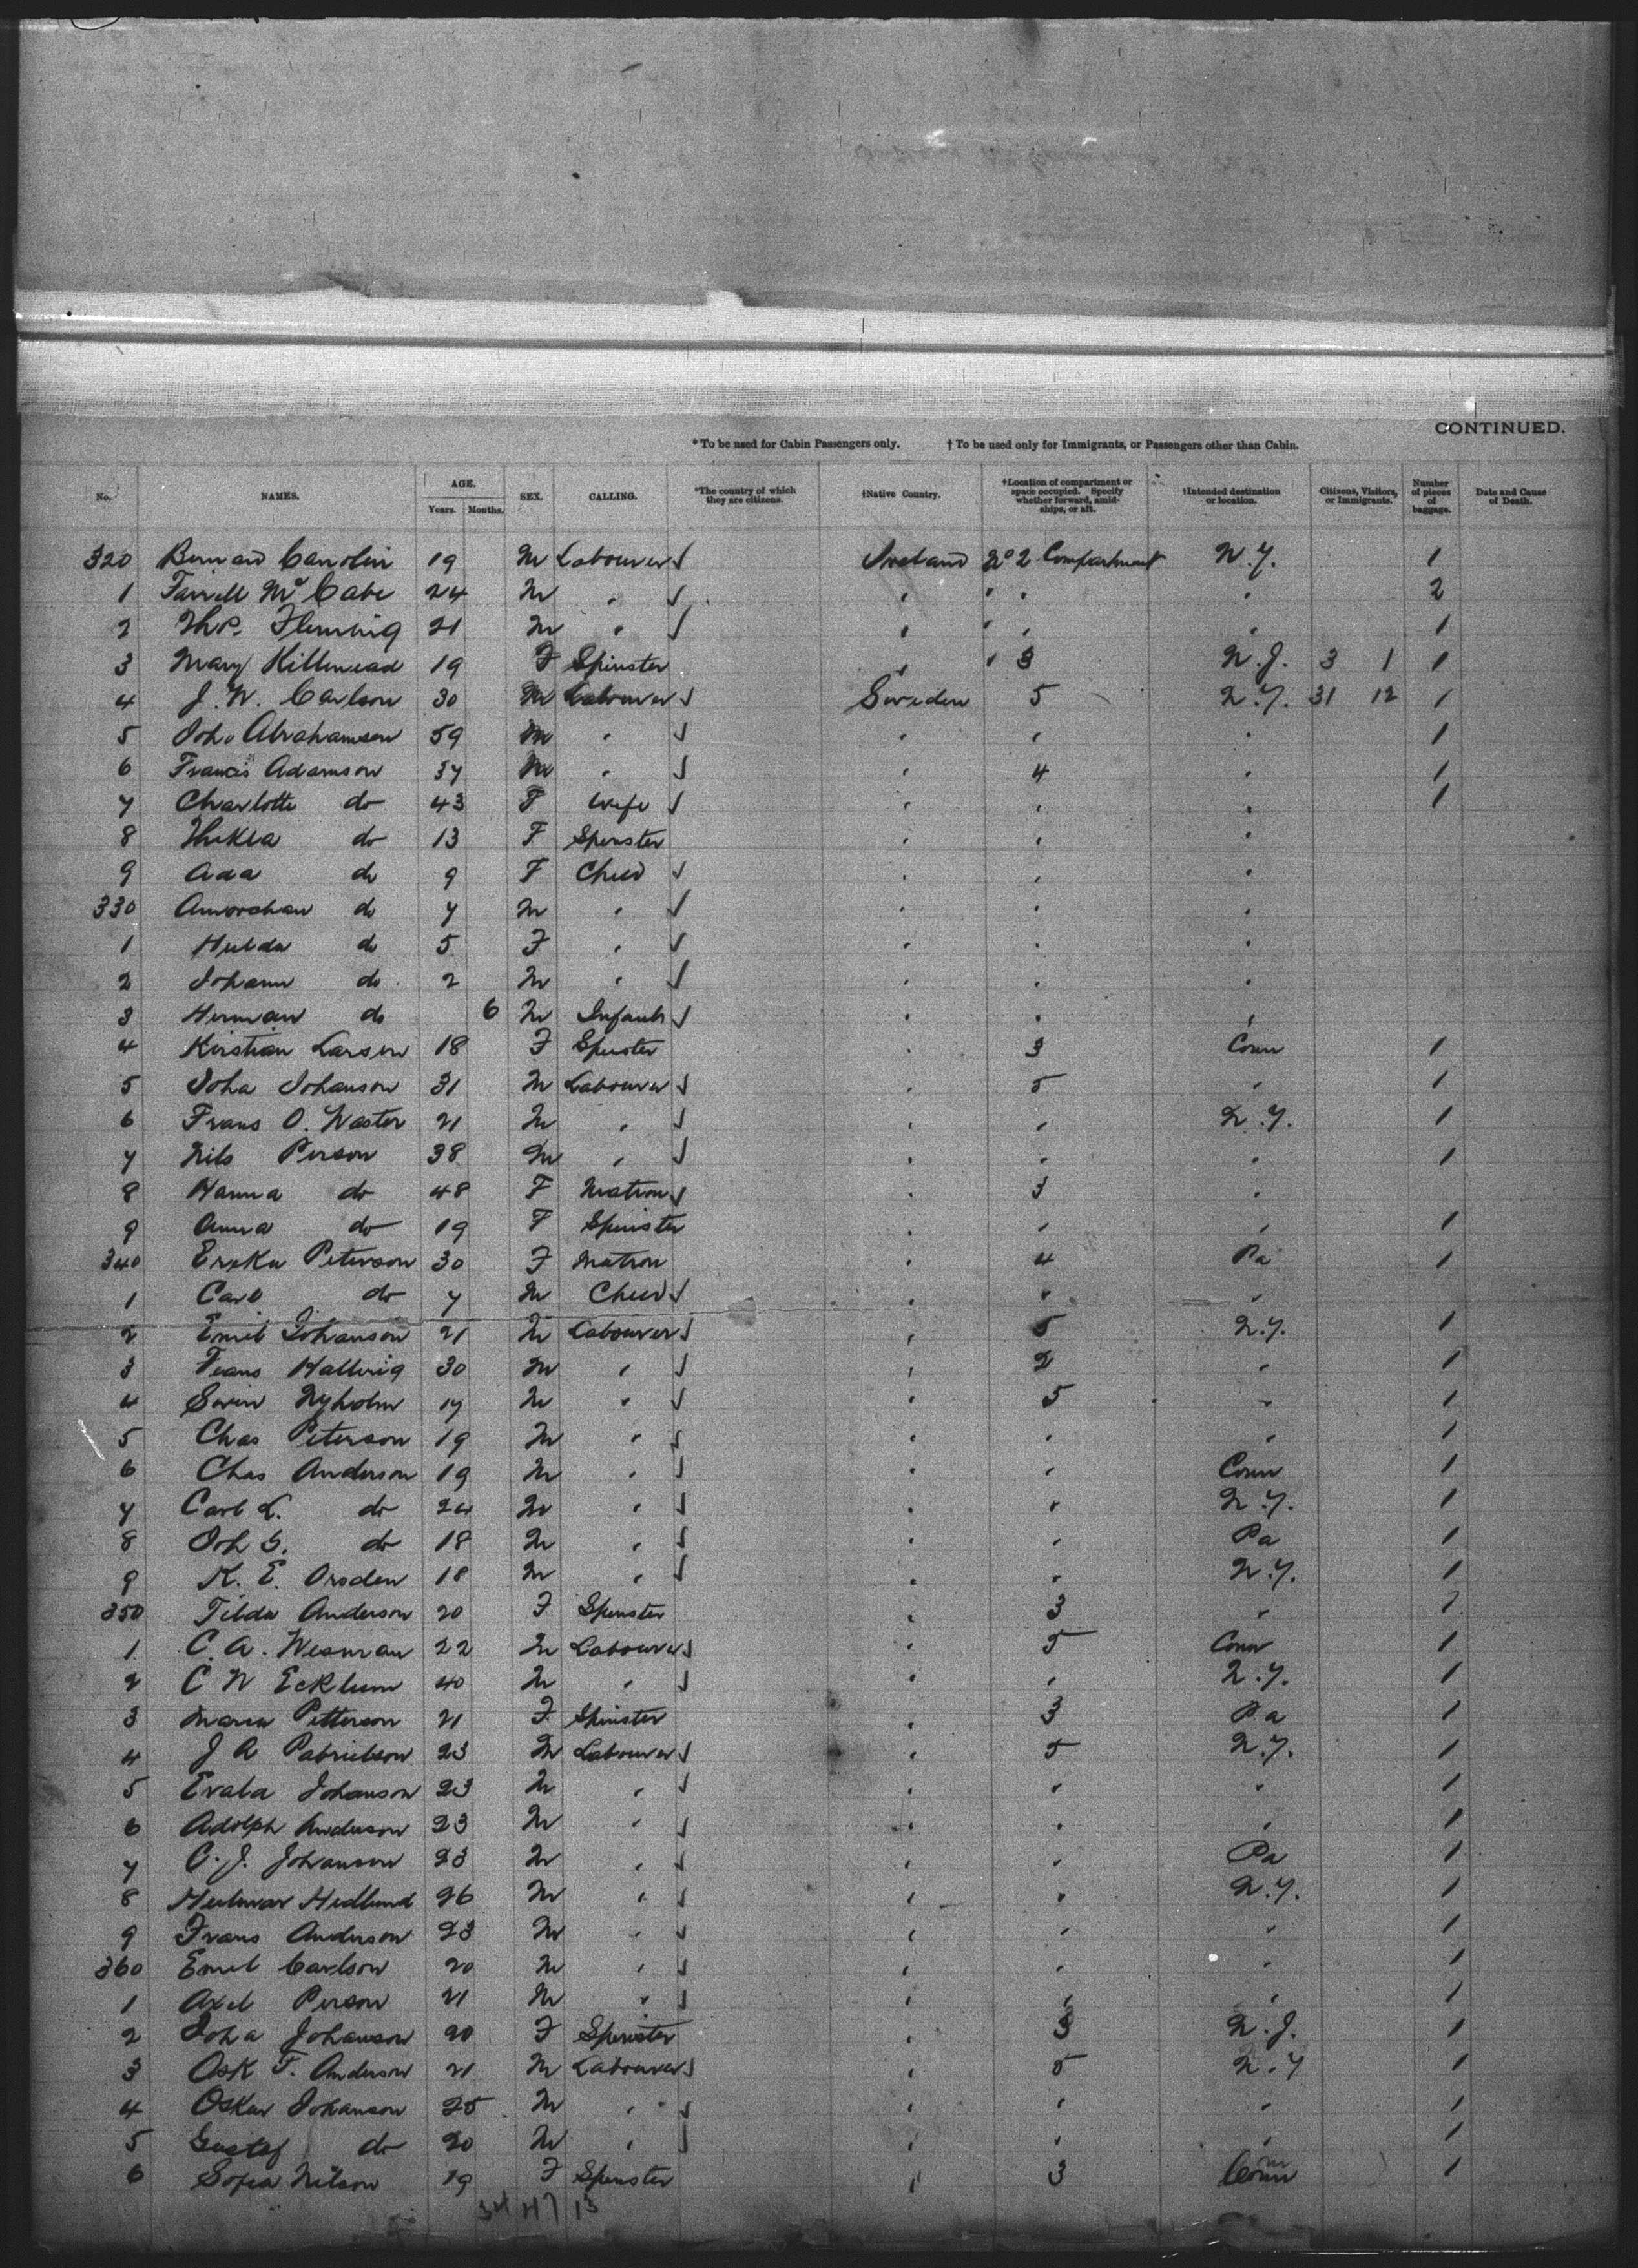 CONTINUED.
*To be used for Cabin Passengers only. † To be used only for Immigrants, or Passengers other than Cabin.
No. NAMES. AGE. Years. Months. SEX. CALLING. *The country of which they are citizens. †Native Country. †Location of compartment or space occupied. Specify whether forward, amidships, or aft. †Intended destination or location. Citizens, Visitors, or Immigrants. Number of pieces of baggage. Date and Cause of Death.
320 19 M Labourer Ireland No 2 Compartment N.Y. 1
1 Farrell McCabe 24 M " " " " " 2
2 Thos. Fleming 21 M " " " " " 1
3 Mary 19 F Spinster " " 3 N.J. 3 1 1
4 J. W. Carlson 30 M Labourer Sweden 5 N.Y. 31 12 1
5 Joh. Abrahamson 59 M " " " " 1
6 Francis Adamson 37 M " " 4 " 1
7 Charlotte do 43 F Wife " " " 1
8 Thekla do 13 F Spinster " " "
9 Ada do 9 F Child " " "
330 do 7 M " " " "
1 Hulda do 5 F " " " "
2 Johann do 2 M " " " "
3 Herman do 6 M Infant " " "
4 Kirstian Larsen 18 F Spinster " 3 Conn 1
5 Joha Johanson 31 M Labourer " 5 " 1
6 Frans O. Waster 21 M " " " N.Y. 1
7 Nils Person 38 M " " " " 1
8 Hanna do 48 F Matron " 3 "
9 Anna do 19 F Spinster " " " 1
340 Erika Peterson 30 F Matron " 4 Pa 1
1 Carl do 7 M Child " " "
2 Emil Johanson 21 M Labourer " 5 N.Y. 1
3 Frans 30 M " " 2 " 1
4 Nyholm 17 M " " 5 " 1
5 Chas Peterson 19 M " " " " 1
6 Chas Anderson 19 M " " " Conn 1
7 Carl L. do 24 M " " " N.Y. 1
8 Joh G. do 18 M " " " Pa 1
9 K. E. Orsden 18 M " " " N.Y. 1
350 Tilda Anderson 20 F Spinster " 3 " 1
1 C. A. Wesman 22 M Labourer " 5 Conn 1
2 C W 40 M " " " N.Y. 1
3 Maria Petterson 21 F Spinster " 3 Pa 1
4 J A 23 M Labourer " 5 N.Y. 1
5 Johanson 23 M " " " " 1
6 Adolph Anderson 23 M " " " " 1
7 C. J. Johanson 23 M " " " Pa 1
8 Hedlund 26 M " " " N.Y. 1
9 Frans Anderson 23 M " " " " 1
360 Emil Carlson 20 M " " " " 1
1 Axel Person 21 M " " " " 1
2 Joha Johanson 20 F Spinster " 3 N.J. 1
3 Osk F. Anderson 21 M Labourer " 5 N.Y 1
4 Oskar Johanson 25 M " " " " 1
5 Gustaf do 20 M " " " " 1
6 Sofia Nilson 19 F Spinster " 3 Conn 1
34 47 13